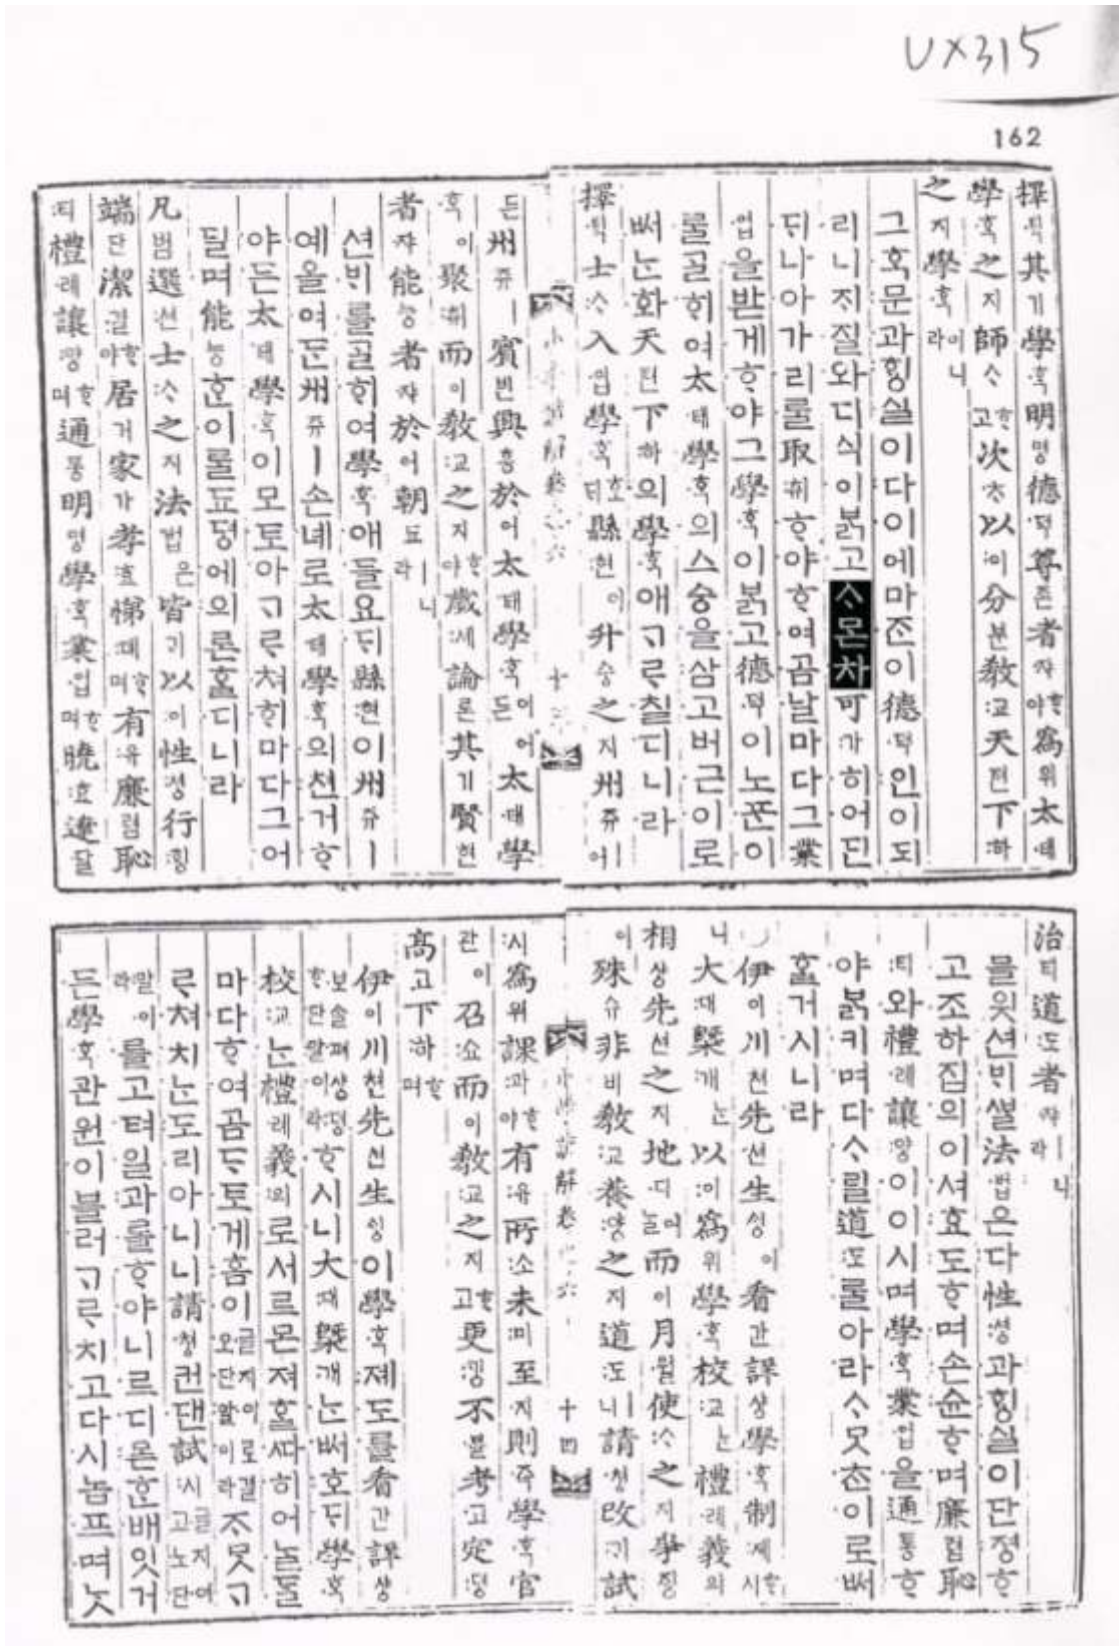 擇ᄐᆡᆨ其기學ᄒᆞᆨ明명德덕尊존者쟈ᄒᆞ야爲위太태
學ᄒᆞᆨ之지師ᄉᆞᄒᆞ고次ᄎᆞ以이分분敎교天텬下하
之지學ᄒᆞᆨ이니라
그ᄒᆞᆨ문과ᄒᆡᆼ실이다이에마ᄌᆞᆫ이德덕인이되
리니ᄌᆡ질와디식이ᄇᆞᆰ고ᄉᆞᄆᆞᆮ차可가히어딘
ᄃᆡ나아가리ᄅᆞᆯ取ᄎᆔᄒᆞ야ᄒᆞ여곰날마다그業
업을받게ᄒᆞ야그學ᄒᆞᆨ이ᄇᆞᆰ고德덕이노ᄑᆞᆫ이
ᄅᆞᆯᄀᆞᆯᄒᆡ여太태學ᄒᆞᆨ의스승을삼고버근이로
ᄡᅥᄂᆞᆫ화天텬下하의學ᄒᆞᆨ애ᄀᆞᄅᆞ칠디니라
擇ᄐᆡᆨ士ᄉᆞ入입學ᄒᆞᆨ호ᄃᆡ縣현이升승之지州쥬ㅣ어
든州쥬ㅣ賓빈興흥於어太태學ᄒᆞᆨ이어든太태學
ᄒᆞᆨ이聚ᄎᆔ而이敎교之지ᄒᆞ야歲셰論론其기賢현
者쟈能능者쟈於어朝됴ㅣ니라
션ᄇᆡᄅᆞᆯᄀᆞᆯᄒᆡ여學ᄒᆞᆨ애들요ᄃᆡ縣현이州쥬ㅣ
예올여ᄃᆞᆫ州쥬ㅣ손녜로太태學ᄒᆞᆨ의쳔거ᄒᆞ
야든太태學ᄒᆞᆨ이모토아ᄀᆞᄅᆞ쳐ᄒᆡ마다그어
딜며能능ᄒᆞᆫ이ᄅᆞᆯ됴뎡에의론홀디니라
凡범選션士ᄉᆞ之지法법은皆ᄀᆡ以이性셩行ᄒᆡᆼ
端단潔결ᄒᆞ야居거家가孝효悌뎨ᄒᆞ며有유廉렴恥
티禮례讓ᅀᅣᆼᄒᆞ며通통明명學ᄒᆞᆨ業업ᄒᆞ며曉효達달
治티道도者쟈ㅣ니라
믈읫션ᄇᆡᄲᆞᆯ法법은다性셩과ᄒᆡᆼ실이단졍ᄒᆞ
고조하집의이셔효도ᄒᆞ며손슌ᄒᆞ며廉렴恥
티와禮례讓양이이시며學ᄒᆞᆨ業업을通통ᄒᆞ
야ᄇᆞᆰ키며다ᄉᆞ릴道도ᄅᆞᆯ아라ᄉᆞᄆᆞᆺᄎᆞᆫ이로ᄡᅥ
홀거시니라
伊이川쳔先션生ᄉᆡᆼ이看간詳샹學ᄒᆞᆨ制졔ᄒᆞ시
니大대槩개ᄂᆞᆫ以이爲위學ᄒᆞᆨ校교ᄂᆞᆫ禮례義의
相샹先션之지地디어ᄂᆞᆯ而이月월使ᄉᆞ之지爭ᄌᆡᆼ
이殊슈非비敎교養양之지道도ㅣ니請쳥改ᄀᆡ試
시爲위課과ᄒᆞ야有유所소未미至지則즉學ᄒᆞᆨ官
관이召쇼而이敎교之지ᄒᆞ고更ᄀᆡᆼ不블考고定뎡
高고下하ᄒᆞ며
伊이川쳔先션生ᄉᆡᆼ이學ᄒᆞᆨ졔도를看간詳샹
보ᄉᆞᆯ펴샹뎡ᄒᆞ단말이라ᄒᆞ시니大대槩개ᄂᆞᆫᄡᅥ호ᄃᆡ學ᄒᆞᆨ
校교ᄂᆞᆫ禮례義의로서ᄅᆞ몬져홀ᄯᅡ히어ᄂᆞᆯᄃᆞᆯ
마다ᄒᆞ여곰ᄃᆞ토게홈이글지이로결오단말이라ᄌᆞ못ᄀᆞ
ᄅᆞ쳐치ᄂᆞᆫ도리아니니請쳥컨댄試시글지여고노단
말이라를고텨일과를ᄒᆞ야니르디몯ᄒᆞᆫ배잇거
든學ᄒᆞᆨ관원이블러ᄀᆞᄅᆞ치고다시놉프며ᄂᆞᆺ
162
UX315